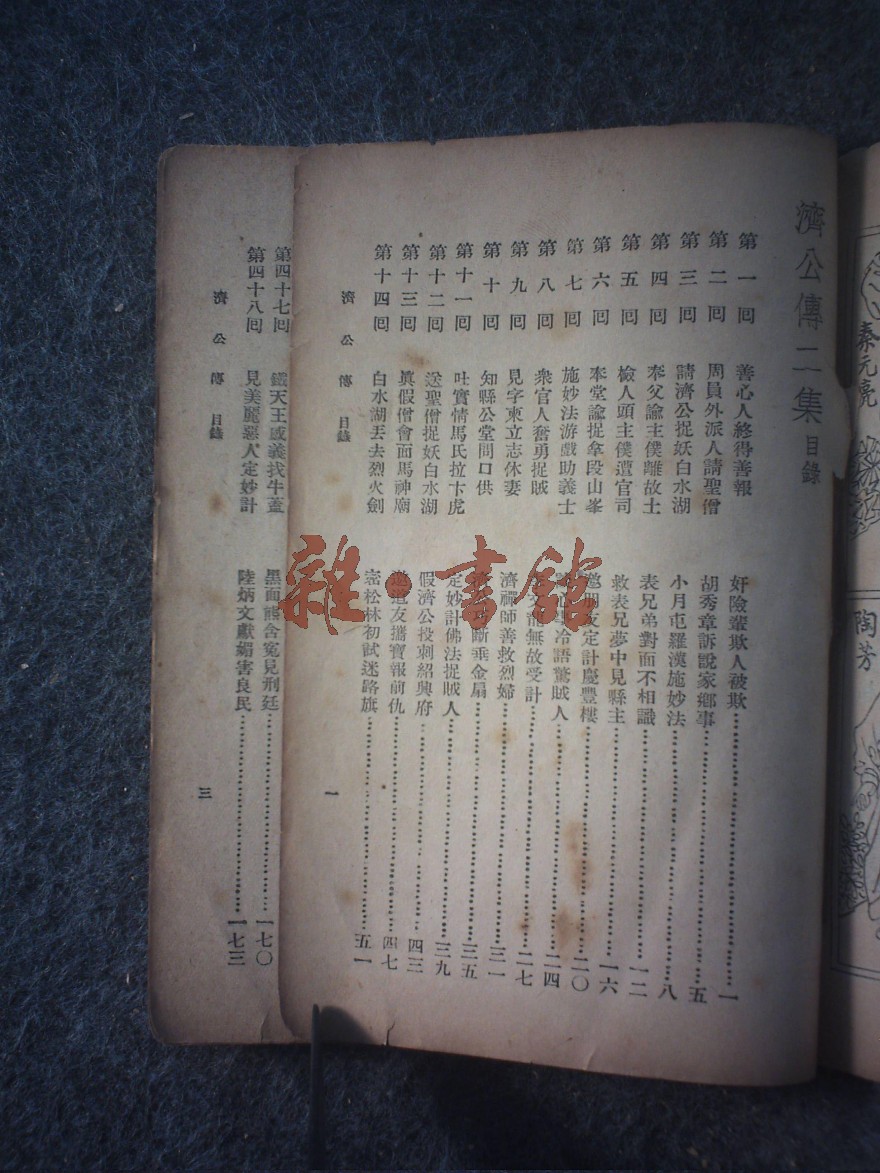 濟公傳二集 目錄
第一回 善心人終得善報 奸險輩欺人被欺 一
第二回 周員外派人請聖僧 胡秀章訴說家鄉事 五
第三回 請濟公捉妖白水湖 小月屯羅漢施妙法 八
第四回 奉父諭主僕離故土 表兄弟對面不相識 一二
第五回 檢人頭主僕遭官司 救表兄夢中見縣主 一六
第六回 奉堂諭捉拿段山峯 邀朋友定計慶豐樓 二〇
第七回 施妙法游戲助義士 冷語驚賊人 二四
第八回 衆官人奮勇捉賊 無故受計 二七
第九回 見字柬立志休妻 濟禪師善救烈婦 三一
第十回 知縣公堂問口供 斷垂金扇 三五
第十一回 吐實情馬氏拉卞虎 定妙計佛法捉賊人 三九
第十二回 送聖僧捉妖白水湖 假濟公投刺紹興府 四三
第十三回 眞假僧會面馬神廟 邀道友攜寶報前仇 四七
第十四回 白水湖丟去烈火劍 密松林初試迷路旗 五一
濟公傳 目錄 一
第四十七回 鐵天王感義找牛蓋 黑面熊含冤見刑廷 一七〇
第四十八回 見美麗惡人定妙計 陸炳文獻媚害良民 一七三
濟公傳 目錄 三
秦元亮
陶芳
雜·書館